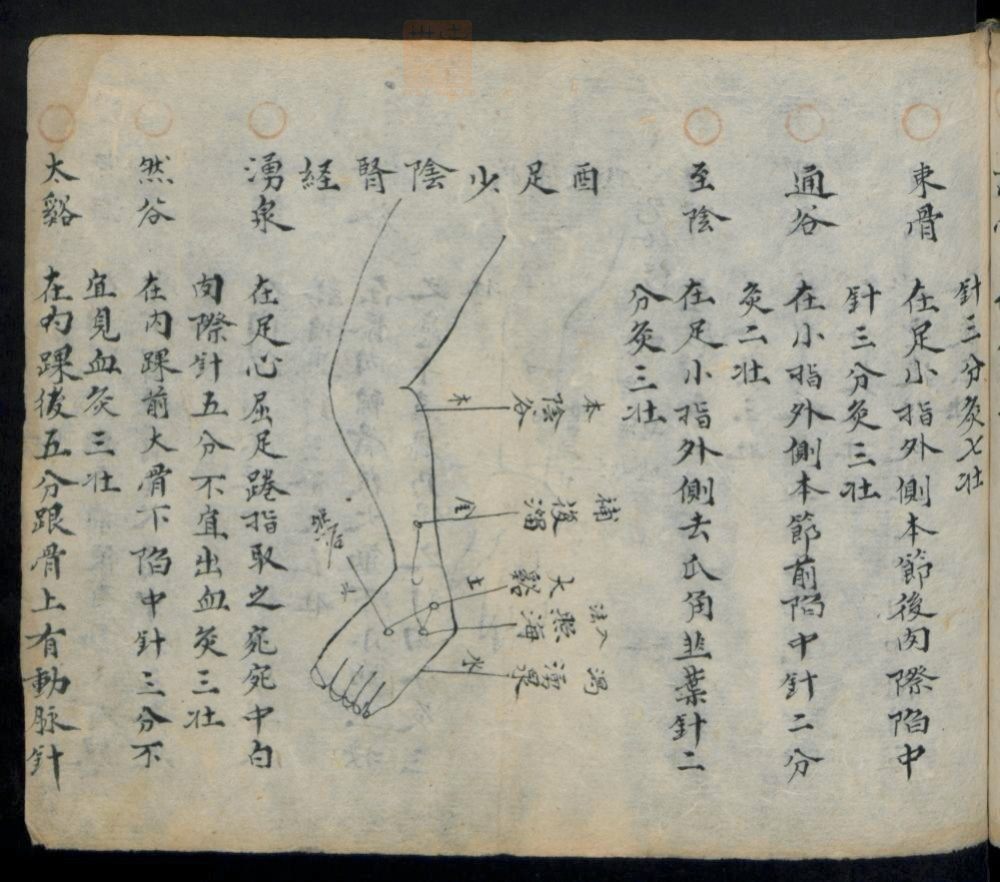 針三分灸七壯
束骨 在足小指外側本節後肉際陷中
針三分灸三壯
通谷 在小指外側本節前陷中針二分
灸二壯
至陰 在足小指外側去爪角韭葉針二
分灸三壯
酉足少陰腎経
本 陰谷 木
補 復溜 金
太谿 土
照海
瀉 湧泉 木
然谷
湧泉 在足心屈足踡指取之宛宛中白
肉際針五分不宜出血灸三壯
然谷 在内踝前大骨下陷中針三分不
宜見血灸三壯
太谿 在内踝後五分跟骨上有動脉針